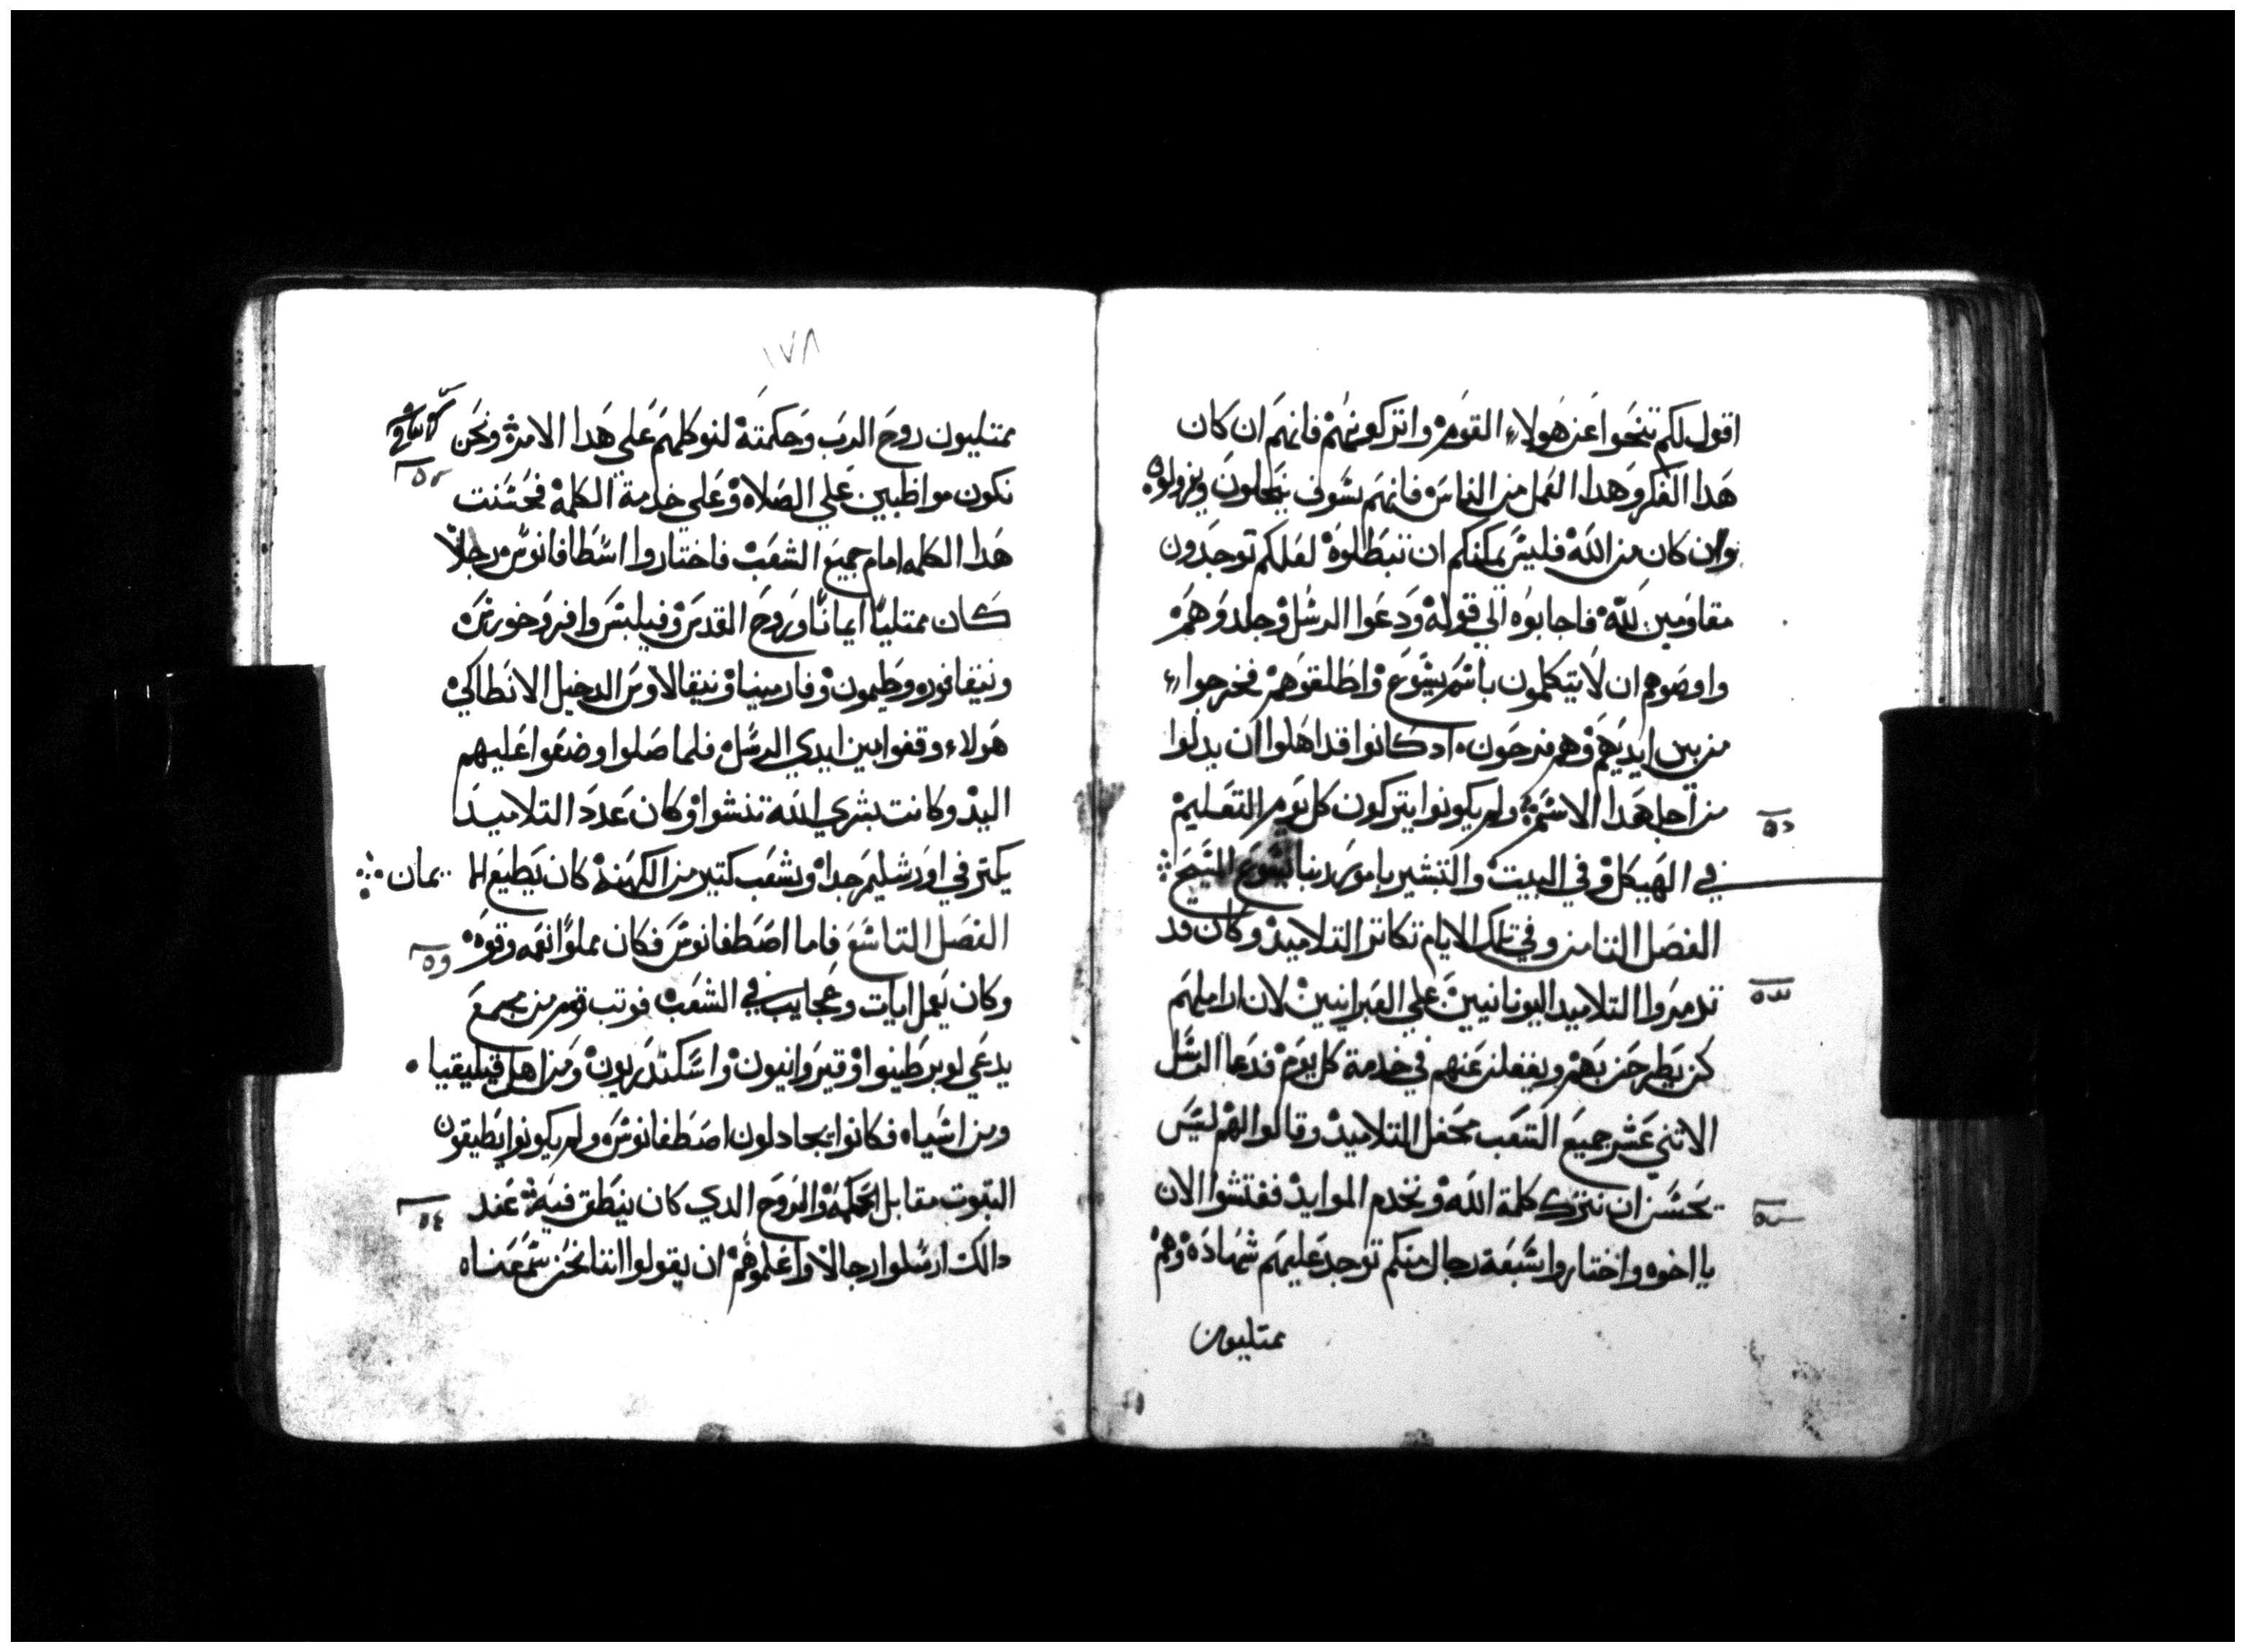 اقول لكم تنحوا عن هولاء القوم واتركوهم فانهم ان كان
هدا الفكر وهدا العمل من الناس فانهم سوف ينحلون ويزولوا
وان كان من الله فليس يمكنكم ان تبطلوه لعلكم توجدون
مقاومين لله فاجابوه الي قوله ودعوا الرسل وجلدوهم
واوصوهم ان لا يتكلمون باسم يسوع واطلقوهم فخرجوا
من بين ايديهم وهم فرحون اد كانوا قد اهلوا ان يدلوا
من اجل هدا الاسم ولم يكونوا يتركون كل يوم التعليم
في الهيكل وفي البيت والتبشير بامر ربنا يسوع المسيح
الفصل الثامن وفي تلك الايام تكاتر التلاميد وكان قد
تدمروا التلاميد اليونانيين علي العبرانيين لان اراملهم
كن يطرحن بهم ويغفلن عنهم في خدمة كل يوم فدعا الرسل
الاثني عشر جميع الشعب محفل التلاميد وقالوا لهم ليس
يحسن ان نترك كلمة الله ونخدم الموايد ففتشوا الان
يا اخوه واختاروا سبعة رجال منكم توجد عليهم شهاده وهم
ممتليون
١٧٨
ممتليون روح الرب وحكمته لنوكلهم علي هدا الامر ونحن
نكون مواظبين علي الصلاه وعلي خدمة الكلمة فحسنت
هدا الكلمه امام جميع الشعب فاختاروا اسطافانوس رجلاً
كان ممتلياً ايماناً وروح القدس وفيلبس وافروخورس
ونيقانوره وطيمون وفارمينا ونيقالاوس الدخيل الانطاكي
هولاء وقفوا بين ايدي الرسل فلما صلوا وضعوا عليهم
اليد وكانت بشري الله تنشوا وكان عدد التلاميد
يكتر في اورشليم جدا وشعب كتير من الكهنة كان يطيع الايمان
الفصل التاسع فاما اصطفانوس فكان مملوا نعمه وقوه
وكان يعمل ايات وعجايب في الشعب فوتب قوم من مجمع
يدعي لوبرطينوا وقيروانيون واسكندريون ومن اهل قيليقيا
ومن اسياه فكانوا يجادلون اصطفانوس ولم يكونوا يطيقون
التبوت مقابل الحكمة والروح الدي كان ينطق فيه عند
دالك ارسلوا رجالا واعلموهم ان يقولوا اننا نحن سمعناه